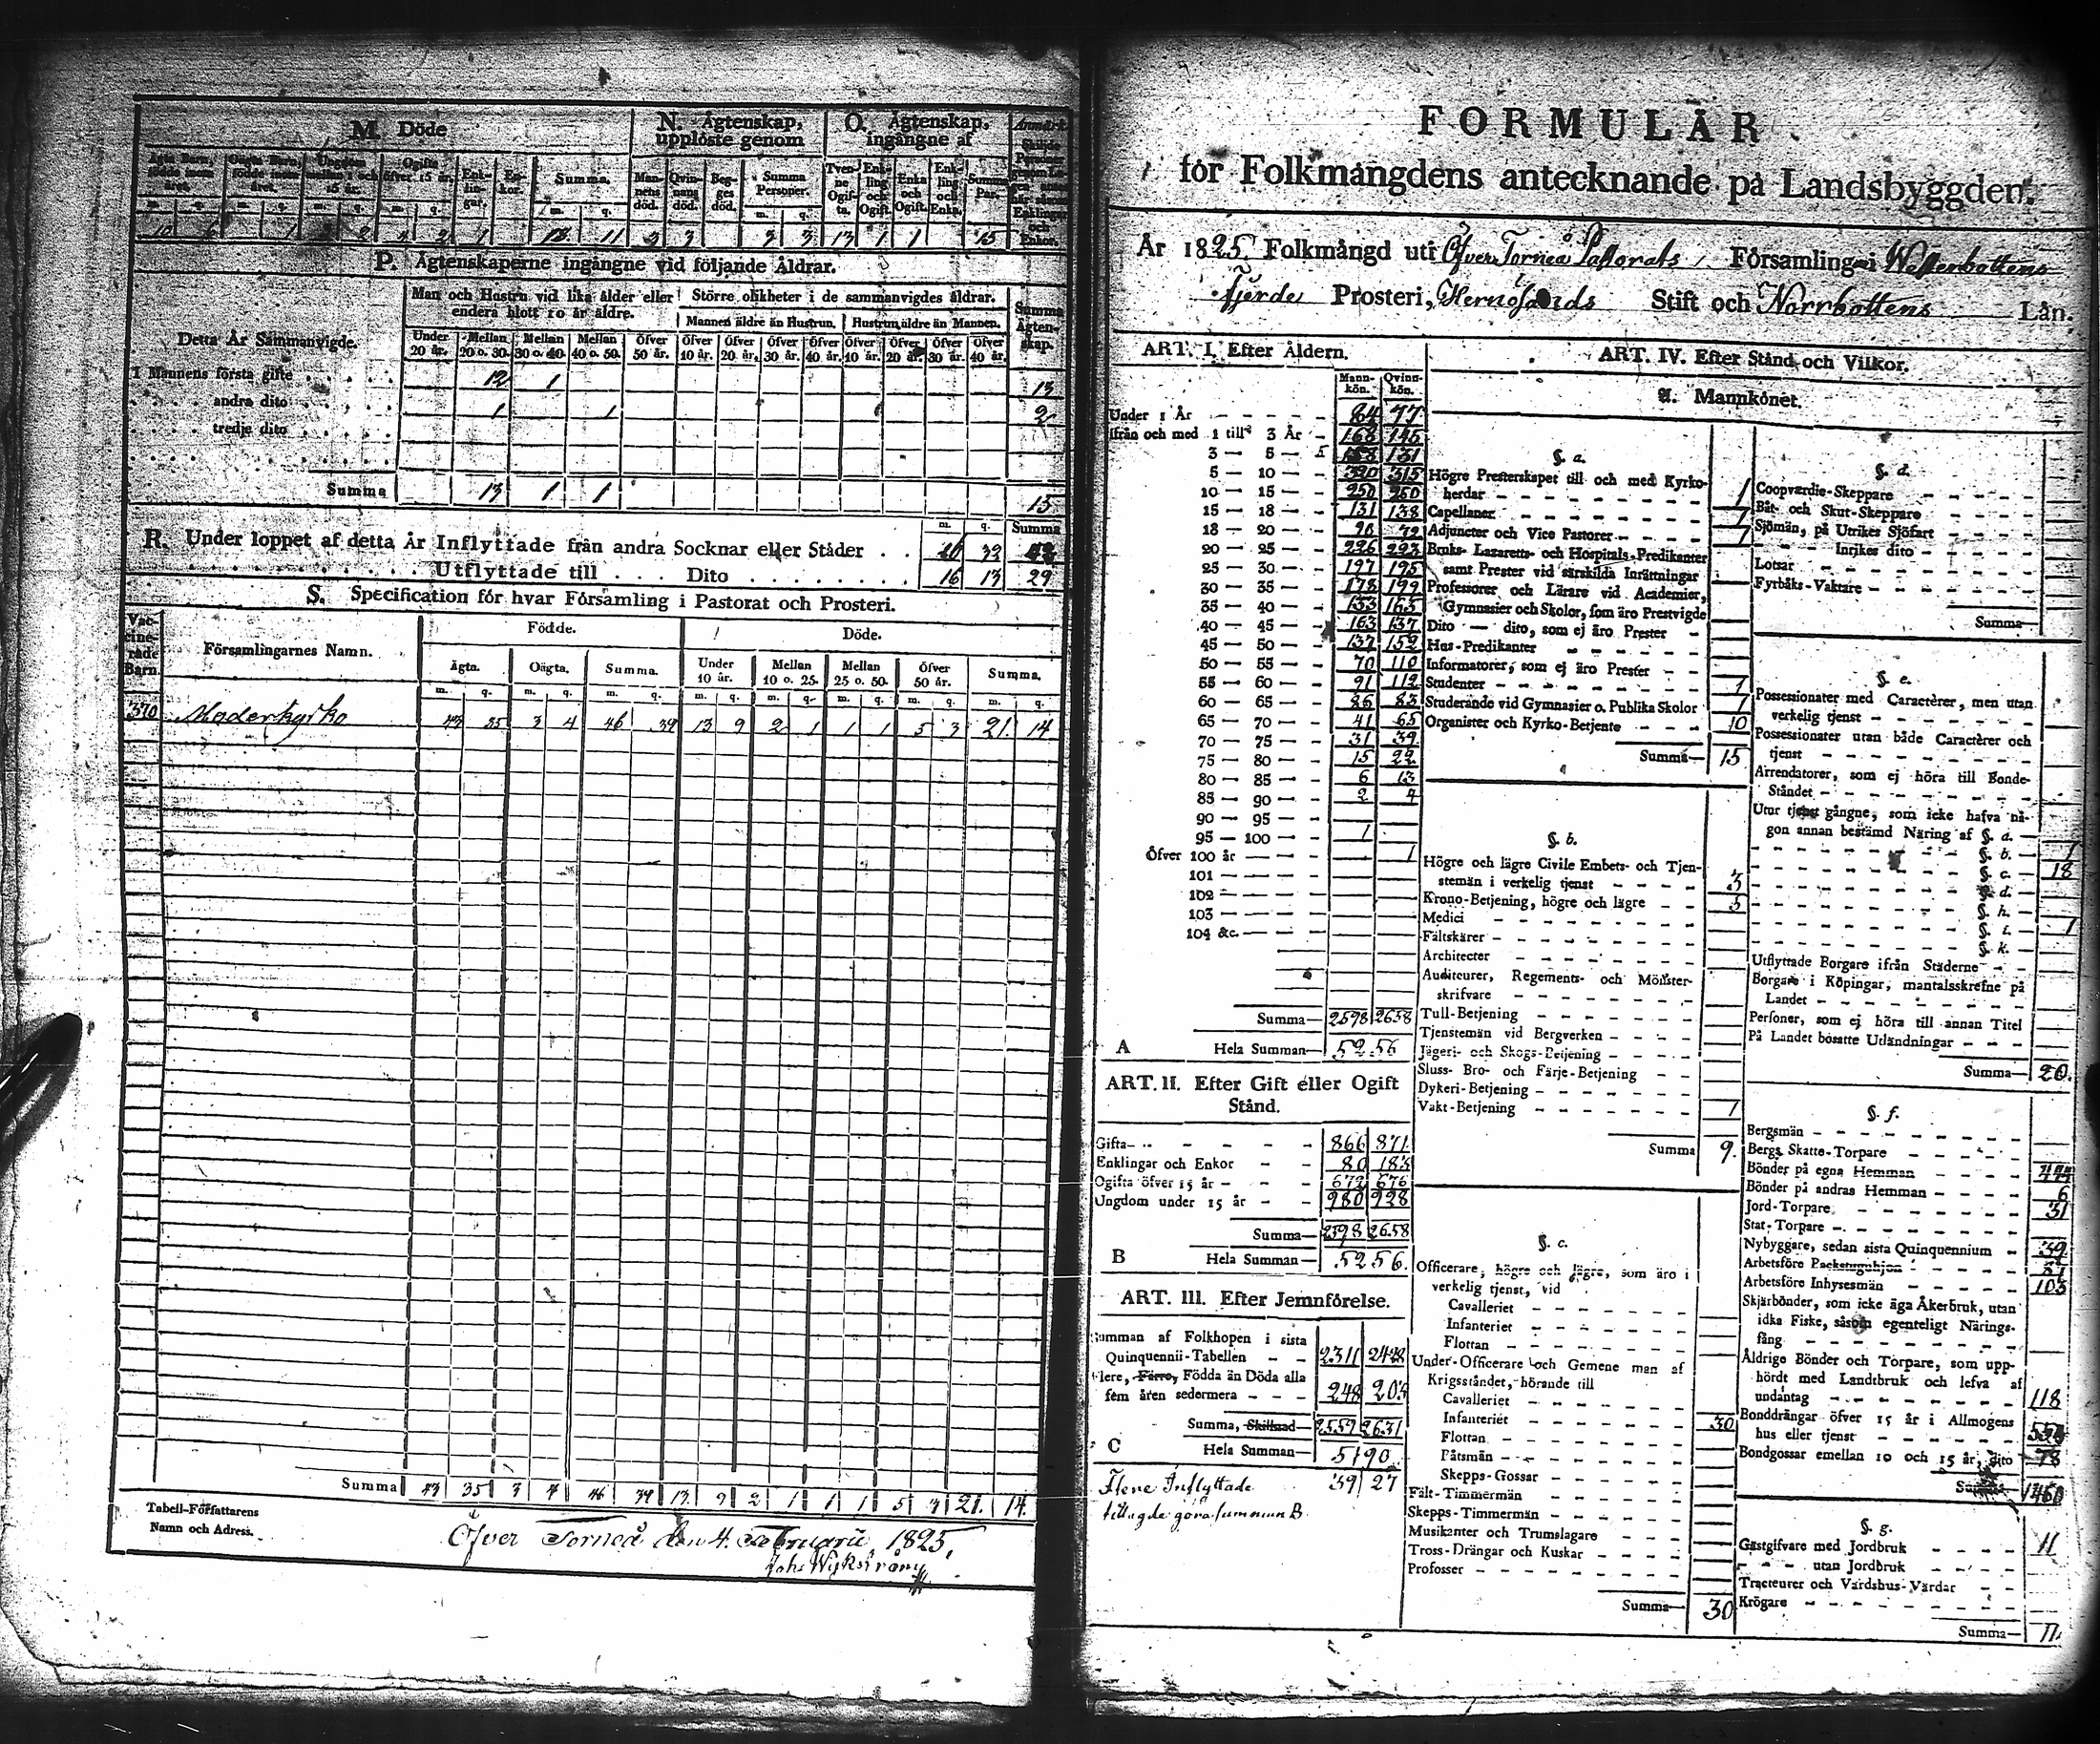 M. Döde
N. Ägtenskap, upplöste genom
O. Ägtenskap, ingångne af
Ägta Barn, födde inom året.
Oägta Barn, födde inom året.
Ungdom mellan 1 och 15 år.
Ogifta öfver 15 år.
Enk-lin-gar.
En-kor.
Summa.
Man-nens död.
Qvin-nans död.
Beg-ges död.
Summa Personer.
Tven-ne Ogif-ta.
Enk-ling och Ogift.
Enka och Ogift.
Enk-ling och Enka.
Summa Par.
m. q. m. q. m. q. m. q. m. q. m. q.
10 6 1 2 2 1 18 11 3 3 3 3 13 1 1 15
P. Ägtenskaperne ingångne vid följande Åldrar.
Detta År Sammanvigde.
Man och Hustru vid lika ålder eller endera blott 10 år äldre.
Större olikheter i de sammanvigdes åldrar.
Summa Ägten-skap.
Mannen äldre än Hustrun. Hustrun äldre än Mannen.
Under 20 år. Mellan 20 o. 30. Mellan 30 o. 40. Mellan 40 o. 50. Öfver 50 år. Öfver 10 år. Öfver 20 år. Öfver 30 år. Öfver 40 år. Öfver 10 år. Öfver 20 år. Öfver 30 år. Öfver 40 år.
I Mannens första gifte 12 1 13
andra dito 1 1 2
tredje dito
Summa 13 1 1 15
m. q. Summa
R. Under loppet af detta År Inflyttade från andra Socknar eller Städer . .
Utflyttade till . . . . Dito 16 13 29
S. Specification för hvar Församling i Pastorat och Prosteri.
Vac-cine-rade Barn.
Församlingarnes Namn.
Födde.
Döde.
Ägta. Oägta. Summa. Under 10 år. Mellan 10 o. 25. Mellan 25 o. 50. Öfver 50 år. Summa.
m. q. m. q. m. q. m. q. m. q. m. q. m. q. m. q.
370 Moderkyrko 43 35 3 4 46 39 13 9 2 1 1 1 5 3 21. 14
Summa 43 35 3 4 46 39 13 9 2 1 1 1 5 3 21. 14.
Tabell-Författarens
Namn och Adress.
Öfver Torneå den 4. Februarii 1825,
Joh. Wykström
FORMULÄR
för Folkmängdens antecknande på Landsbyggden.
År 1825. Folkmängd uti Öfver Torneå Pastorats Församling i Westerbottens
Fjerde Prosteri, Hernösands Stift och Norrbottens Län.
ART. I. Efter Åldern.
Mann-kön. Qvinn-kön.
Under 1 År 84 77
ifrån och med 1 till 3 År 168 145
3 — 5 158 131
5 — 10 320 315
10 — 15 250 260
15 — 18 131 138
18 — 20
20 — 25 226 223
25 — 30 197 195
30 — 35 178 199
35 — 40 153 165
40 — 45 163 137
45 — 50 137 152
50 — 55 70 110
55 — 60 91 112
60 — 65 86 83
65 — 70 41 65
70 — 75 31 39
75 — 80 15 22
80 — 85 6 13
85 — 90 2 4
90 — 95
95 — 100 1
Öfver 100 år 1
101
102
103
104 &c.
Summa— 2598 2658
A Hela Summan— 5256
ART. II. Efter Gift eller Ogift
Stånd.
Gifta 866 871
Enklingar och Enkor 80 183
Ogifta öfver 15 år 672 676
Ungdom under 15 år 980 928
Summa— 2598 2658
B Hela Summan— 5256.
ART. III. Efter Jemnförelse.
Summan af Folkhopen i sista
Quinquennii-Tabellen 2311 2428
Flere, Färre, Födda än Döda alla
fem åren sedermera 248 203
Summa, Skillnad 2559 2631
C Hela Summan— 5190
Flere Inflyttade 39 27
tillagde göra summan B.
ART. IV. Efter Stånd och Vilkor.
A. Mannkönet.
§. a.
Högre Presterskapet till och med Kyrko-
herdar 1
Capellaner 1
Adjuncter och Vice Pastorer 1
Bruks- Lazaretts- och Hospitals-Predikanter
samt Prester vid särskilda Inrättningar
Professorer och Lärare vid Academier,
Gymnasier och Skolor, som äro Prestvigde
Dito — dito, som ej äro Prester
Hus-Predikanter
Informatorer, som ej äro Prester
Studenter 1
Studerande vid Gymnasier o. Publika Skolor 1
Organister och Kyrko-Betjente 10
Summa— 15
§. b.
Högre och lägre Civile Embets- och Tjen-
stemän i verkelig tjenst 3
Krono-Betjening, högre och lägre 5
Medici
Fältskärer
Architecter
Auditeurer, Regements- och Mönster-
skrifvare
Tull-Betjening
Tjenstemän vid Bergverken
Jägeri- och Skogs-Betjening
Sluss- Bro- och Färje-Betjening
Dykeri-Betjening
Vakt-Betjening 1
Summa 9.
§. c.
Officerare, högre och lägre, som äro i
verkelig tjenst, vid
Cavalleriet
Infanteriet
Flottan
Under-Officerare och Gemene man af
Krigsståndet, hörande till
Cavalleriet
Infanteriet 30
Flottan
Båtsmän
Skepps-Gossar
Fält-Timmermän
Skepps-Timmermän
Musikanter och Trumslagare
Tross-Drängar och Kuskar
Profosser
Summa— 30
§. d.
Coopværdie-Skeppare
Båt- och Skut-Skeppare
Sjömän, på Utrikes Sjöfart
Inrikes dito
Lotsar
Fyrbåks-Vaktare
Summa—
§. e.
Possessionater med Caractèrer, men utan
verkelig tjenst
Possessionater utan både Caractèrer och
tjenst
Arrendatorer, som ej höra till Bonde-
Ståndet
Utur tjenst gångne, som icke hafva nå-
gon annan bestämd Näring af §. a.
§. b. 1
§. c. 18
§. d.
§. h.
§. i. 1
§. k.
Utflyttade Borgare ifrån Städerne
Borgare i Köpingar, mantalsskrefne på
Landet
Personer, som ej höra till annan Titel
På Landet bosatte Utländningar
Summa— 20.
§. f.
Bergsmän
Bergs Skatte-Torpare
Bönder på egna Hemman
Bönder på andras Hemman 6
Jord-Torpare 31
Stat-Torpare
Nybyggare, sedan sista Quinquennium 39
Arbetsföre
Arbetsföre Inhysesmän 103
Skjärbönder, som icke äga Åkerbruk, utan
idka Fiske, såsom egenteligt Närings-
fång
Åldrige Bönder och Torpare, som upp-
hördt med Landtbruk och lefva af
undantag 118
Bonddrängar öfver 15 år i Allmogens
hus eller tjenst
Bondgossar emellan 10 och 15 år, dito 78
Summa
§. g.
Gästgifvare med Jordbruk 11
utan Jordbruk
Tracteurer och Värdshus-Värdar
Krögare
Summa— 11.